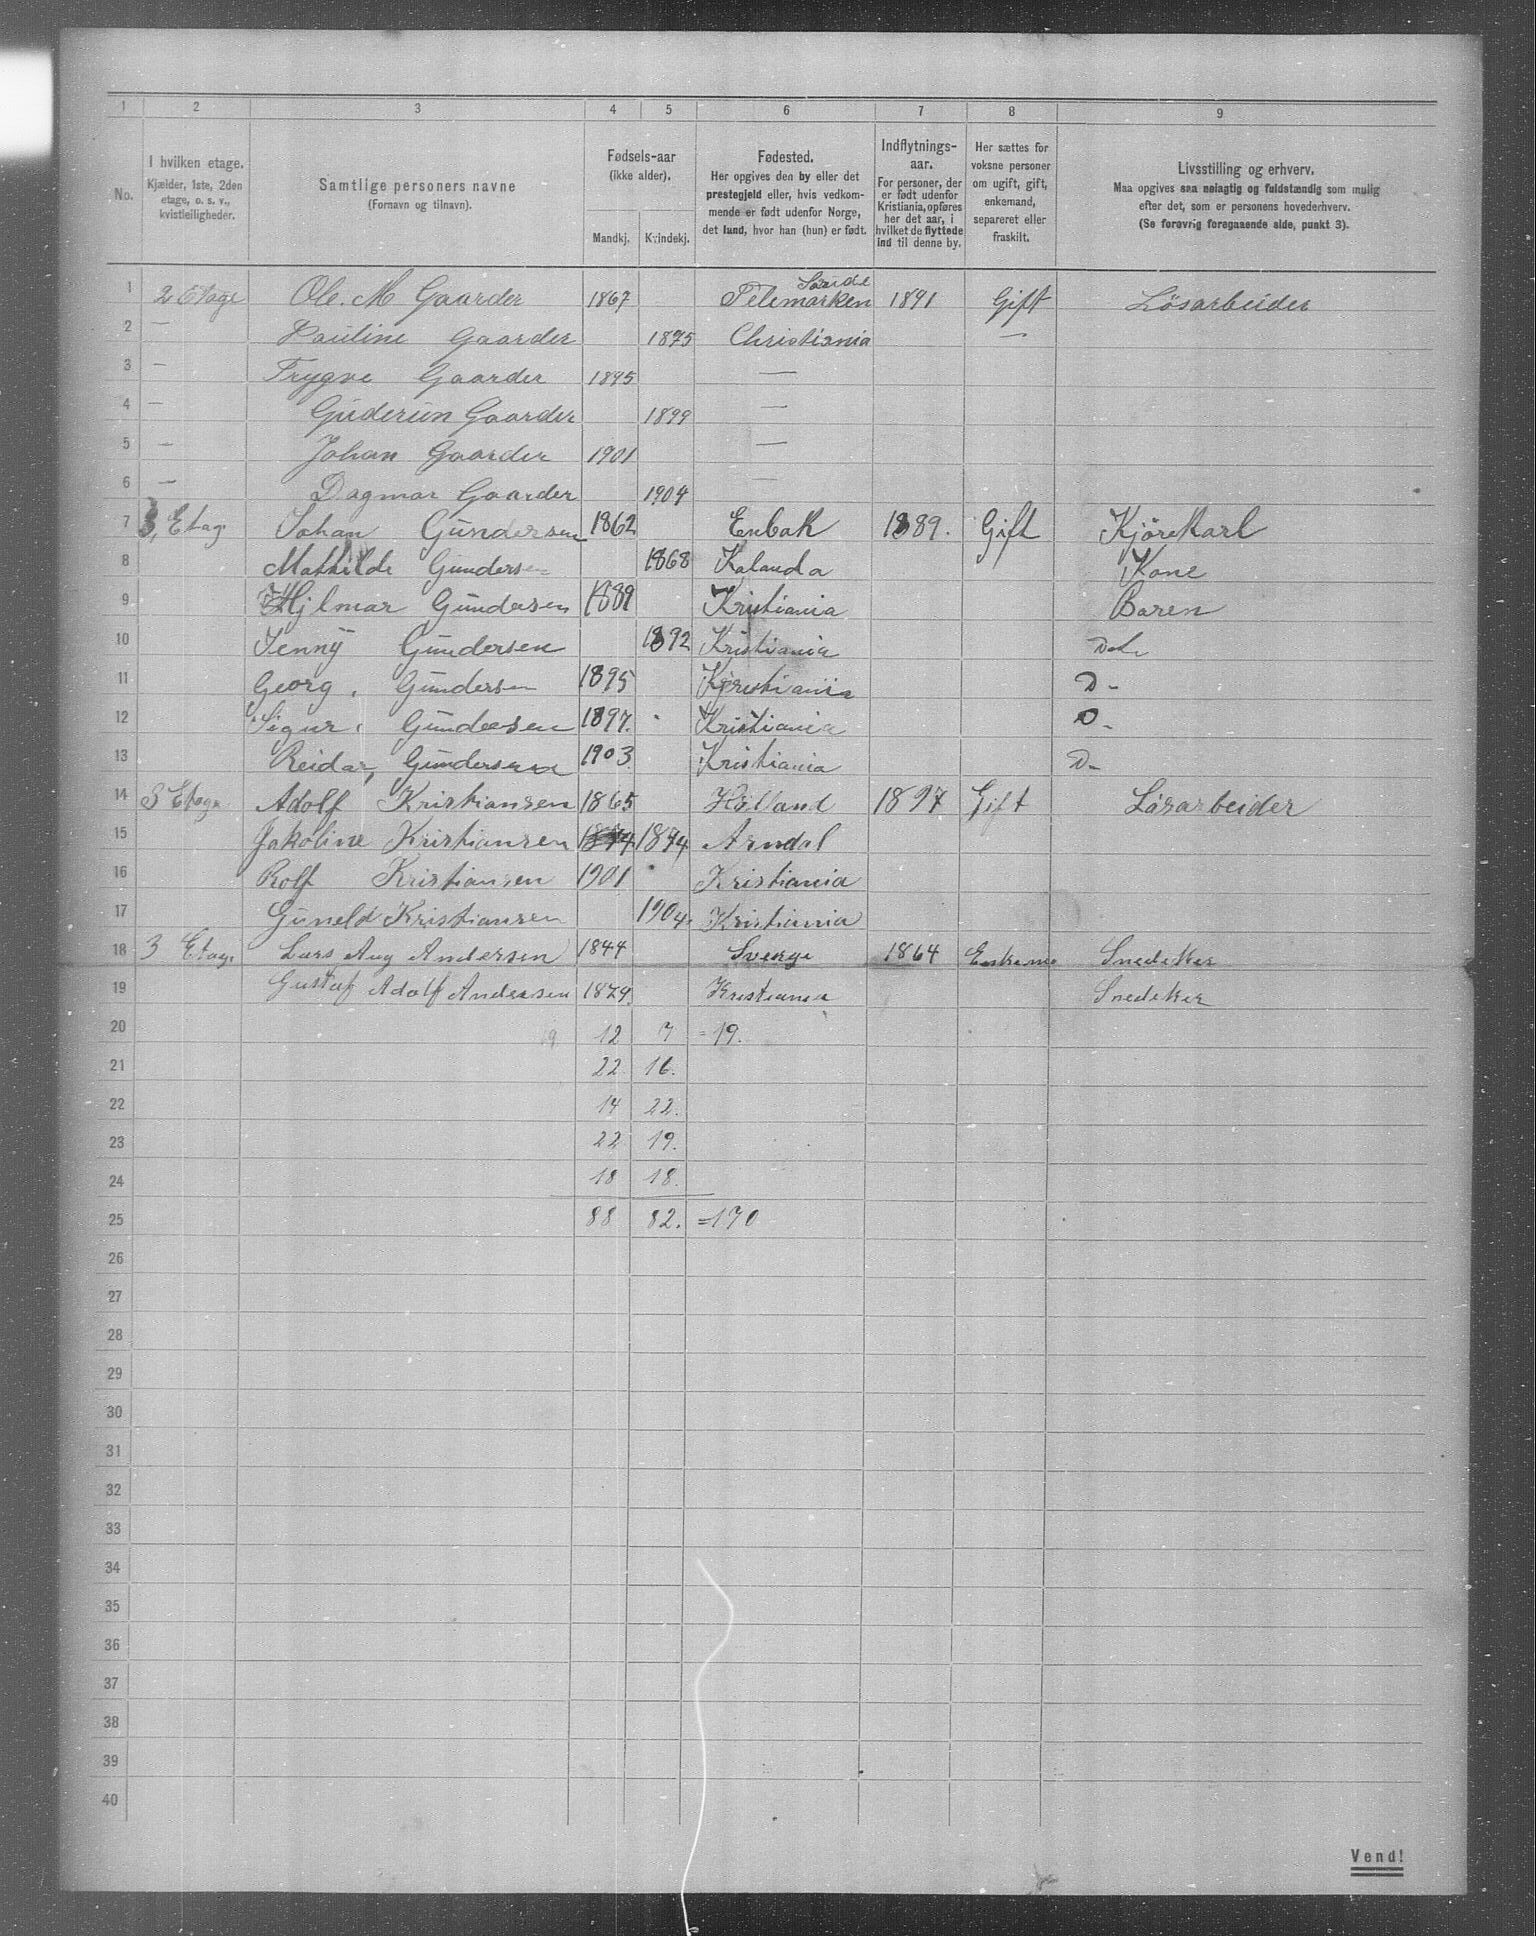 1 2 3 4 5 6 7 8 9
No. I hvilken etage. Kjælder, 1ste, 2den etage, o. s. v., kvistleiligheder. Samtlige personers navne (Fornavn og tilnavn). Fødsels-aar (ikke alder). Mandkj. Kvindekj. Fødested. Her opgives den by eller det prestegjeld eller, hvis vedkommende er født udenfor Norge, det land, hvor han (hun) er født. Indflytnings-aar. For personer, der er født udenfor Kristiania, opføres her det aar, i hvilket de flyttede ind til denne by. Her sættes for voksne personer om ugift, gift, enkemand, separeret eller fraskilt. Livsstilling og erhverv. Maa opgives saa nøiagtig og fuldstændig som mulig efter det, som er personens hovederhverv. (Se forøvrig foregaaende side, punkt 3).
1 2 Etage Ole. M Gaarder 1867 Telemarken 1891 Gift Lösarbeider
2 — Pauline Gaarder 1875 Christiania —
3 — Trygve Gaarder 1895 —
4 — Guderun Gaarder 1899 —
5 — Johan Gaarder 1901 —
6 — Dagmar Gaarder 1904 —
7 3, Etag. Johan Gundersen 1862 Enbak 1889. Gift Kjörekarl
8 Mathilde Gundersen 1868 Kalanda Kone
9 Hjlmar Gundersen 1889 Kristiania Baren
10 Jenny Gundersen 1892 Kristiania
11 Georg. Gundersen 1895 Kristiania D-
12 Sigur. Gundersen 1897. Kristiania D-
13 Reidar, Gundersen 1903 Kristiania D-
14 3 Etage Adolf Kristiansen 1865 Holland 1897 Gift Lösarbeider
15 Jakoline Kristiansen 1874 Arndal
16 Rolf Kristiansen 1901 Kristiania
17 Guneld Kristiansen 1904. Kristiania
18 3 Etag. Lars Aug Andersen 1844 Sverge 1864 Snedeker
19 Gustaf Adolf Andersen 1879. Kristiania Snedeker
20 19 12 7 = 19.
21 22 16.
22 14 22.
23 22 19.
24 18 18.
25 88 82. = 170
26
27
28
29
30
31
32
33
34
35
36
37
38
39
40
Vend!